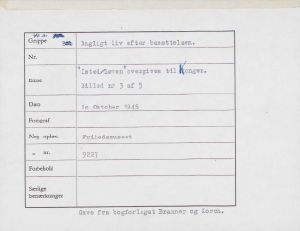 Gruppe Dagligt liv efter besættelsen.
Nr.
Emne "Isted/Løven" overgives til Kongen.
Billed nr 3 af 5
Dato 10 Oktober 1945
Fotograf
Neg. opbev. Frihedsmuseet
" nr. 9227
Forbehold
Særlige
bemærkninger
Gave fra bogforlaget Branner og Korch.